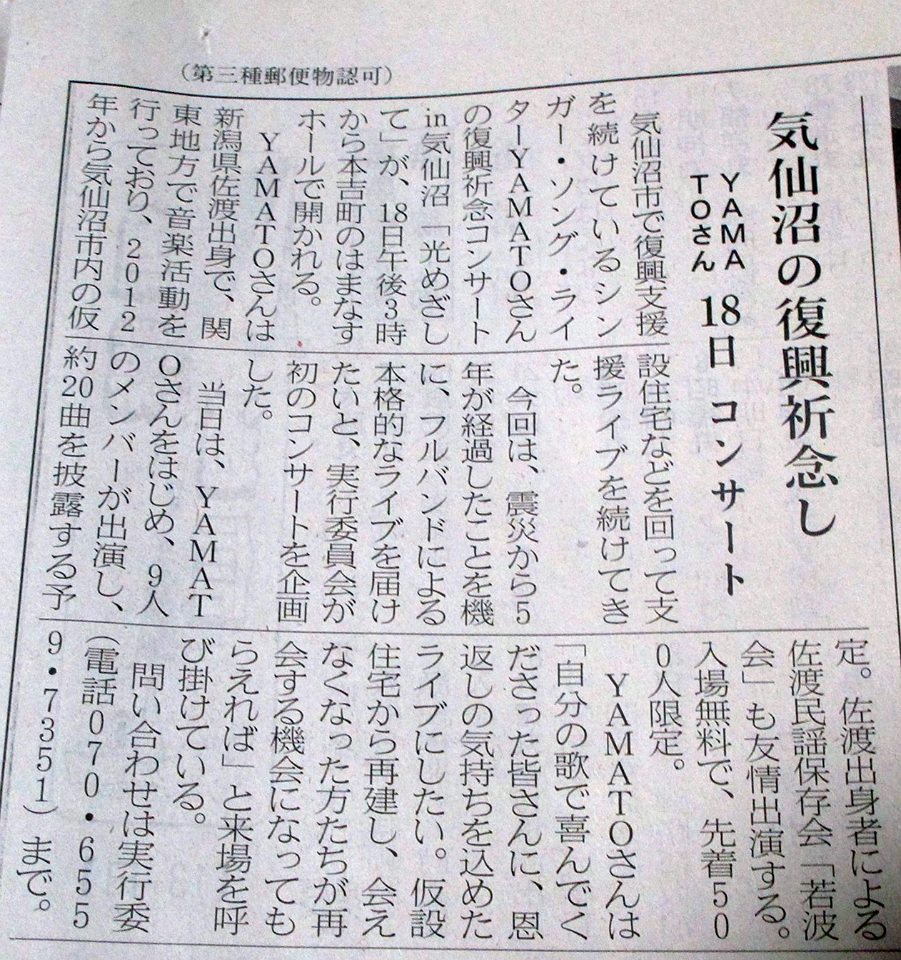 (第三種郵便物認可)
気仙沼の復興祈念し
YAMA
TOさん
18日 コンサート
気仙沼市で復興支援
を続けているシン
ガー・ソング・ライ
ターYAMATOさん
の復興祈念コンサート
in気仙沼「光めざし
て」が、18日午後3時
から本吉町のはまなす
ホールで開かれる。
YAMATOさんは
新潟県佐渡出身で、関
東地方で音楽活動を
行っており、2012
年から気仙沼市内の仮
設住宅などを回って支
援ライブを続けてき
た。
今回は、震災から5
年が経過したことを機
に、フルバンドによる
本格的なライブを届け
たいと、実行委員会が
初のコンサートを企画
した。
当日は、YAMAT
Oさんをはじめ、9人
のメンバーが出演し、
約20曲を披露する予
定。佐渡出身者による
佐渡民謡保存会「若波
会」も友情出演する。
入場無料で、先着50
0人限定。
YAMATOさんは
「自分の歌で喜んでく
ださった皆さんに、恩
返しの気持ちを込めた
ライブにしたい。仮設
住宅から再建し、会え
なくなった方たちが再
会する機会になっても
らえれば」と来場を呼
び掛けている。
問い合わせは実行委
(電話070・655
9・7351)まで。